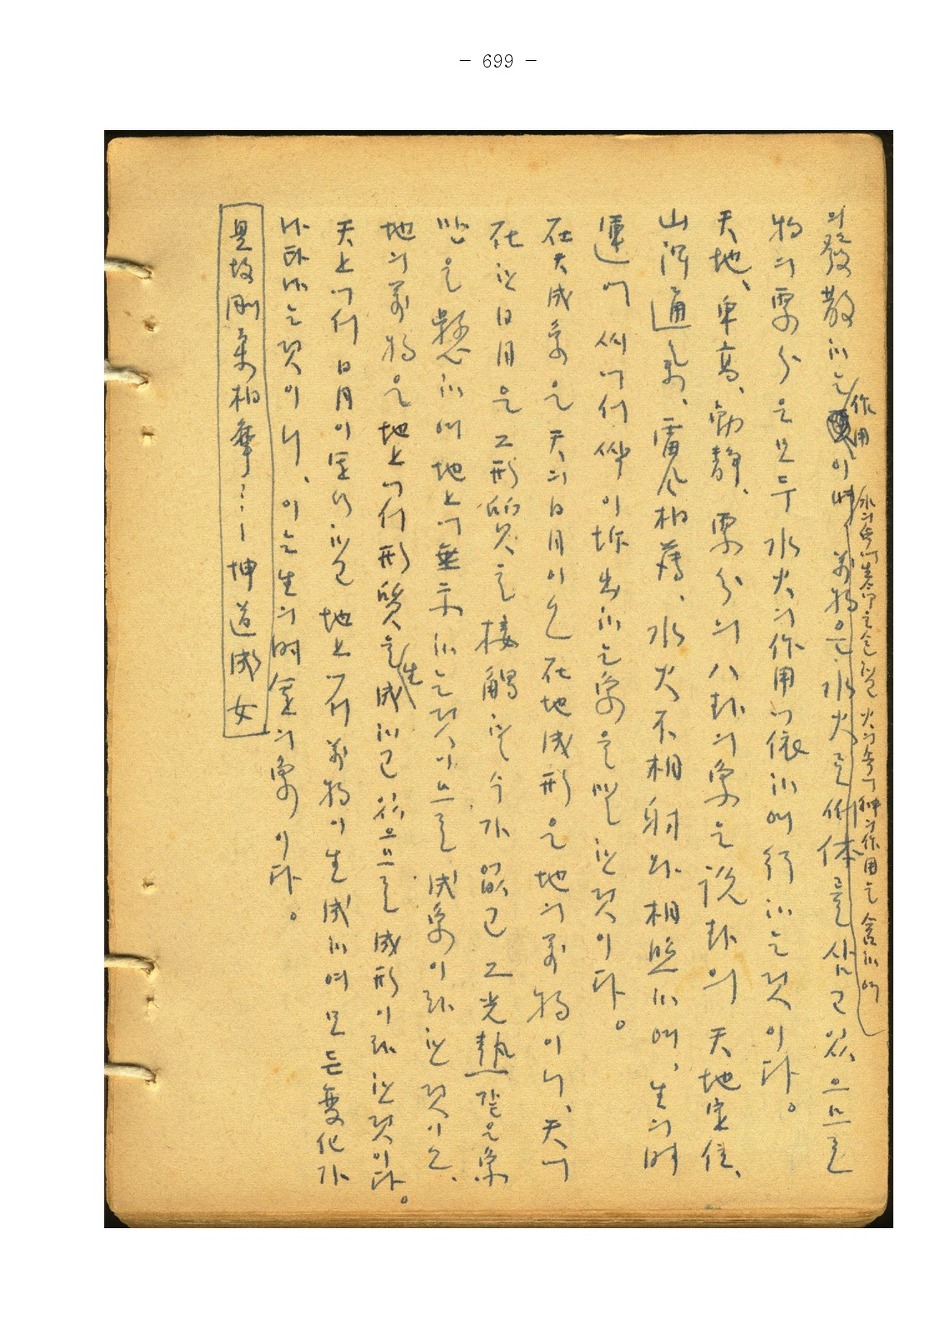 - 699 -
의 發散하는 作用이며 萬物은 水火로써 体를 삼고 있으므로
水의 속에 生命을 火의 속에 神의 作用을 含하며
物의 稟分은 모두 水火의 作用에 依하여 行하는 것이다。
天地、卑高、動靜、稟分의 八卦의 象은 說卦의 天地定位、
山澤通氣、雷風相薄、水火不相射와 相照하여、生의 時
運에 씨에서 싹이 坼出하는 象을 말한 것이다。
在天成象은 天의 日月이오 在地成形은 地의 萬物이니、天에
在한 日月은 그 形質은 接觸할 수가 없고 그 光熱같은 象
만을 懸하여 地上에 垂示하는 것이므로 成象이라 한 것이오、
地의 萬物은 地上에서 形質을 生成하고 있으므로 成形이라 한 것이다。
天上에서 日月이 運行하면 地上에서 萬物이 生成하여 모든 變化가
나타나는 것이니、이는 生의 時運의 象이다。
是故剛柔相摩……坤道成女